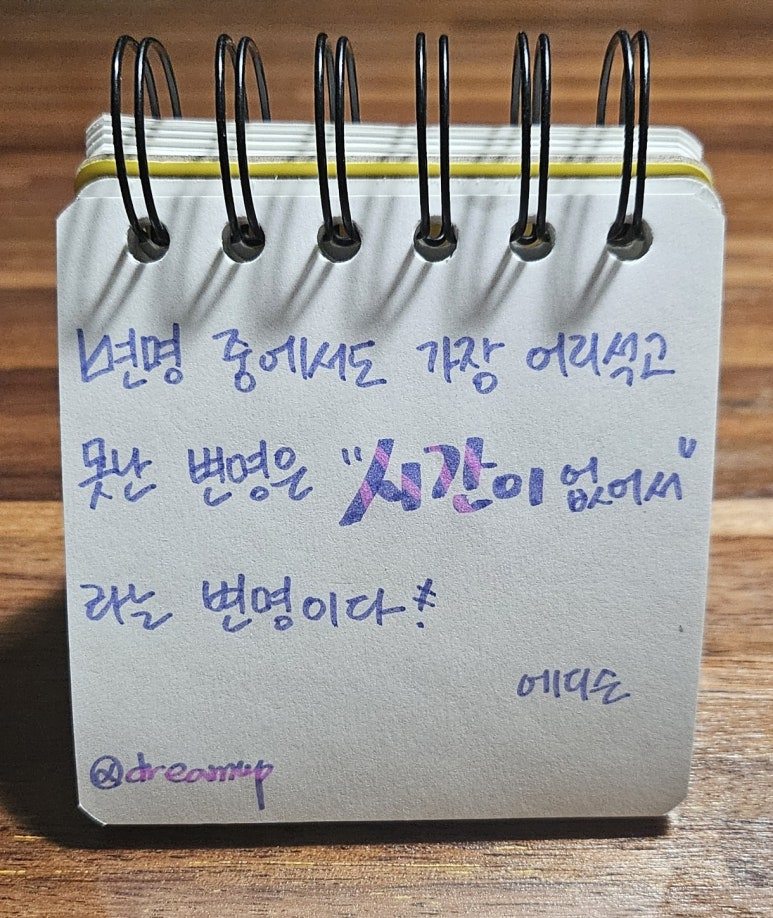 변명 중에서도 가장 어리석고
못난 변명은 "시간이 없어서"
라는 변명이다.
에디슨
@dreamup